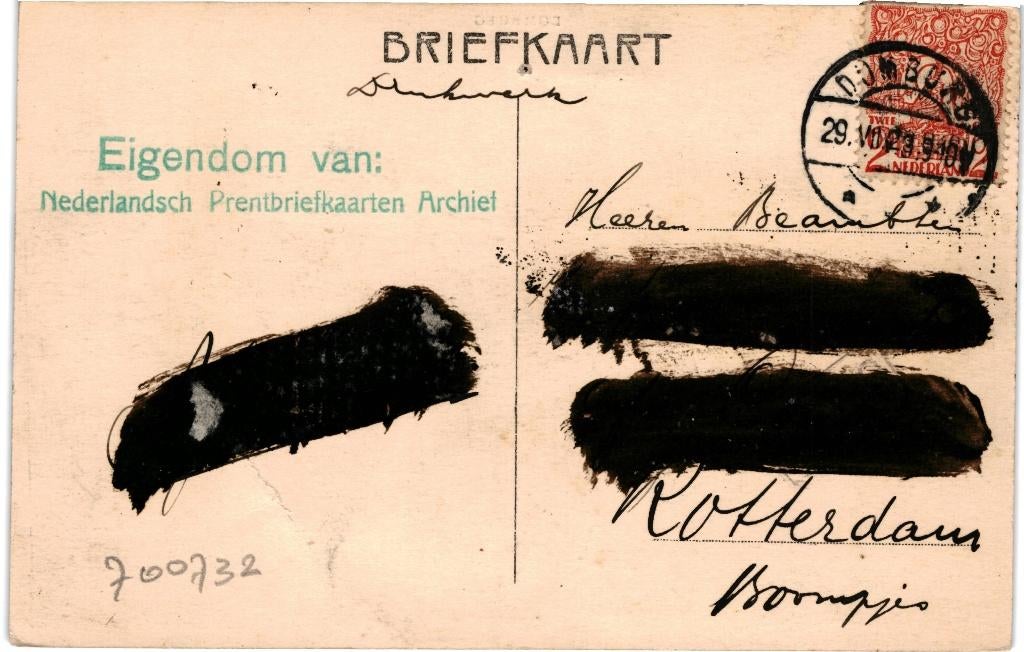 BRIEFKAART
Drukwerk
Eigendom van:
Nederlandsch Prentbriefkaarten Archief
DOMBURG
29.VII.23.9-10V
TWEE
2 2
NEDERLAND
Heeren Beambten
Rotterdam
Boompjes
700732